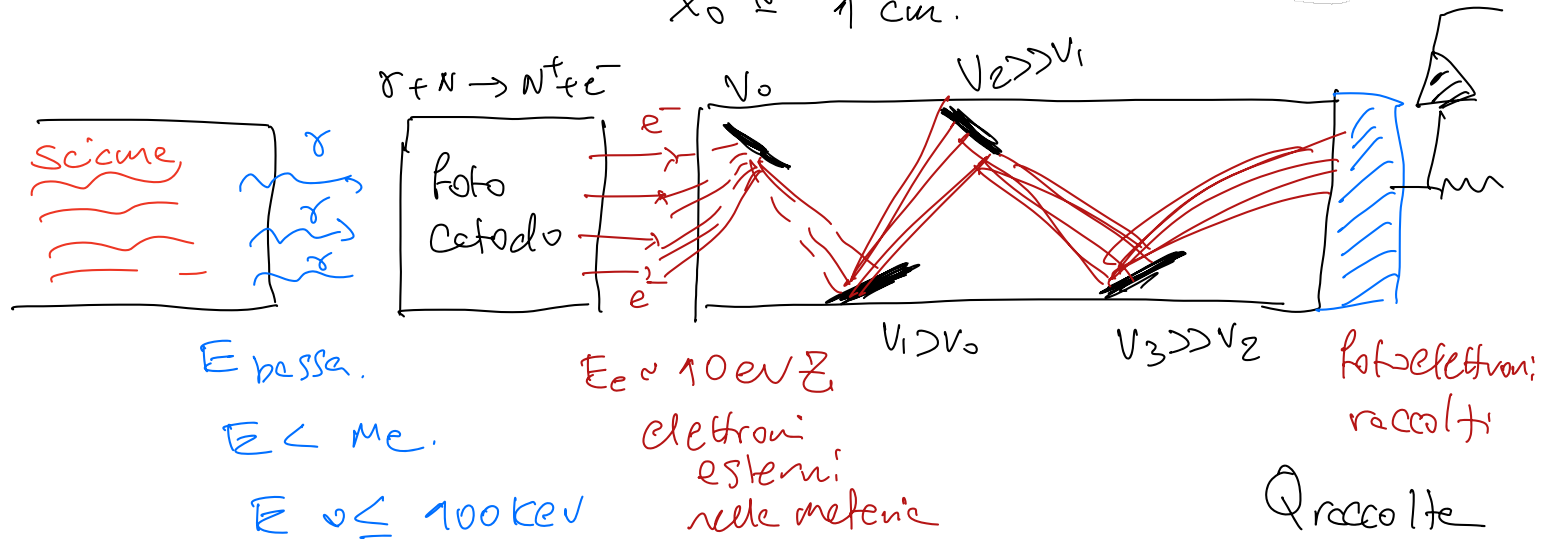 X₀ ≃ 1 cm.
γ + N → N⁺ + e⁻
V₀
V₂ >> V₁
sciame
γ
γ
γ
foto
catodo
e⁻
e⁻
V₁ > V₀
V₃ >> V₂
E bassa.
E < me.
E ~≤ 100 KeV
Ee ~ 10 eV Z
elettroni
esterni
nella materia
fotoelettroni
raccolti
Q raccolta